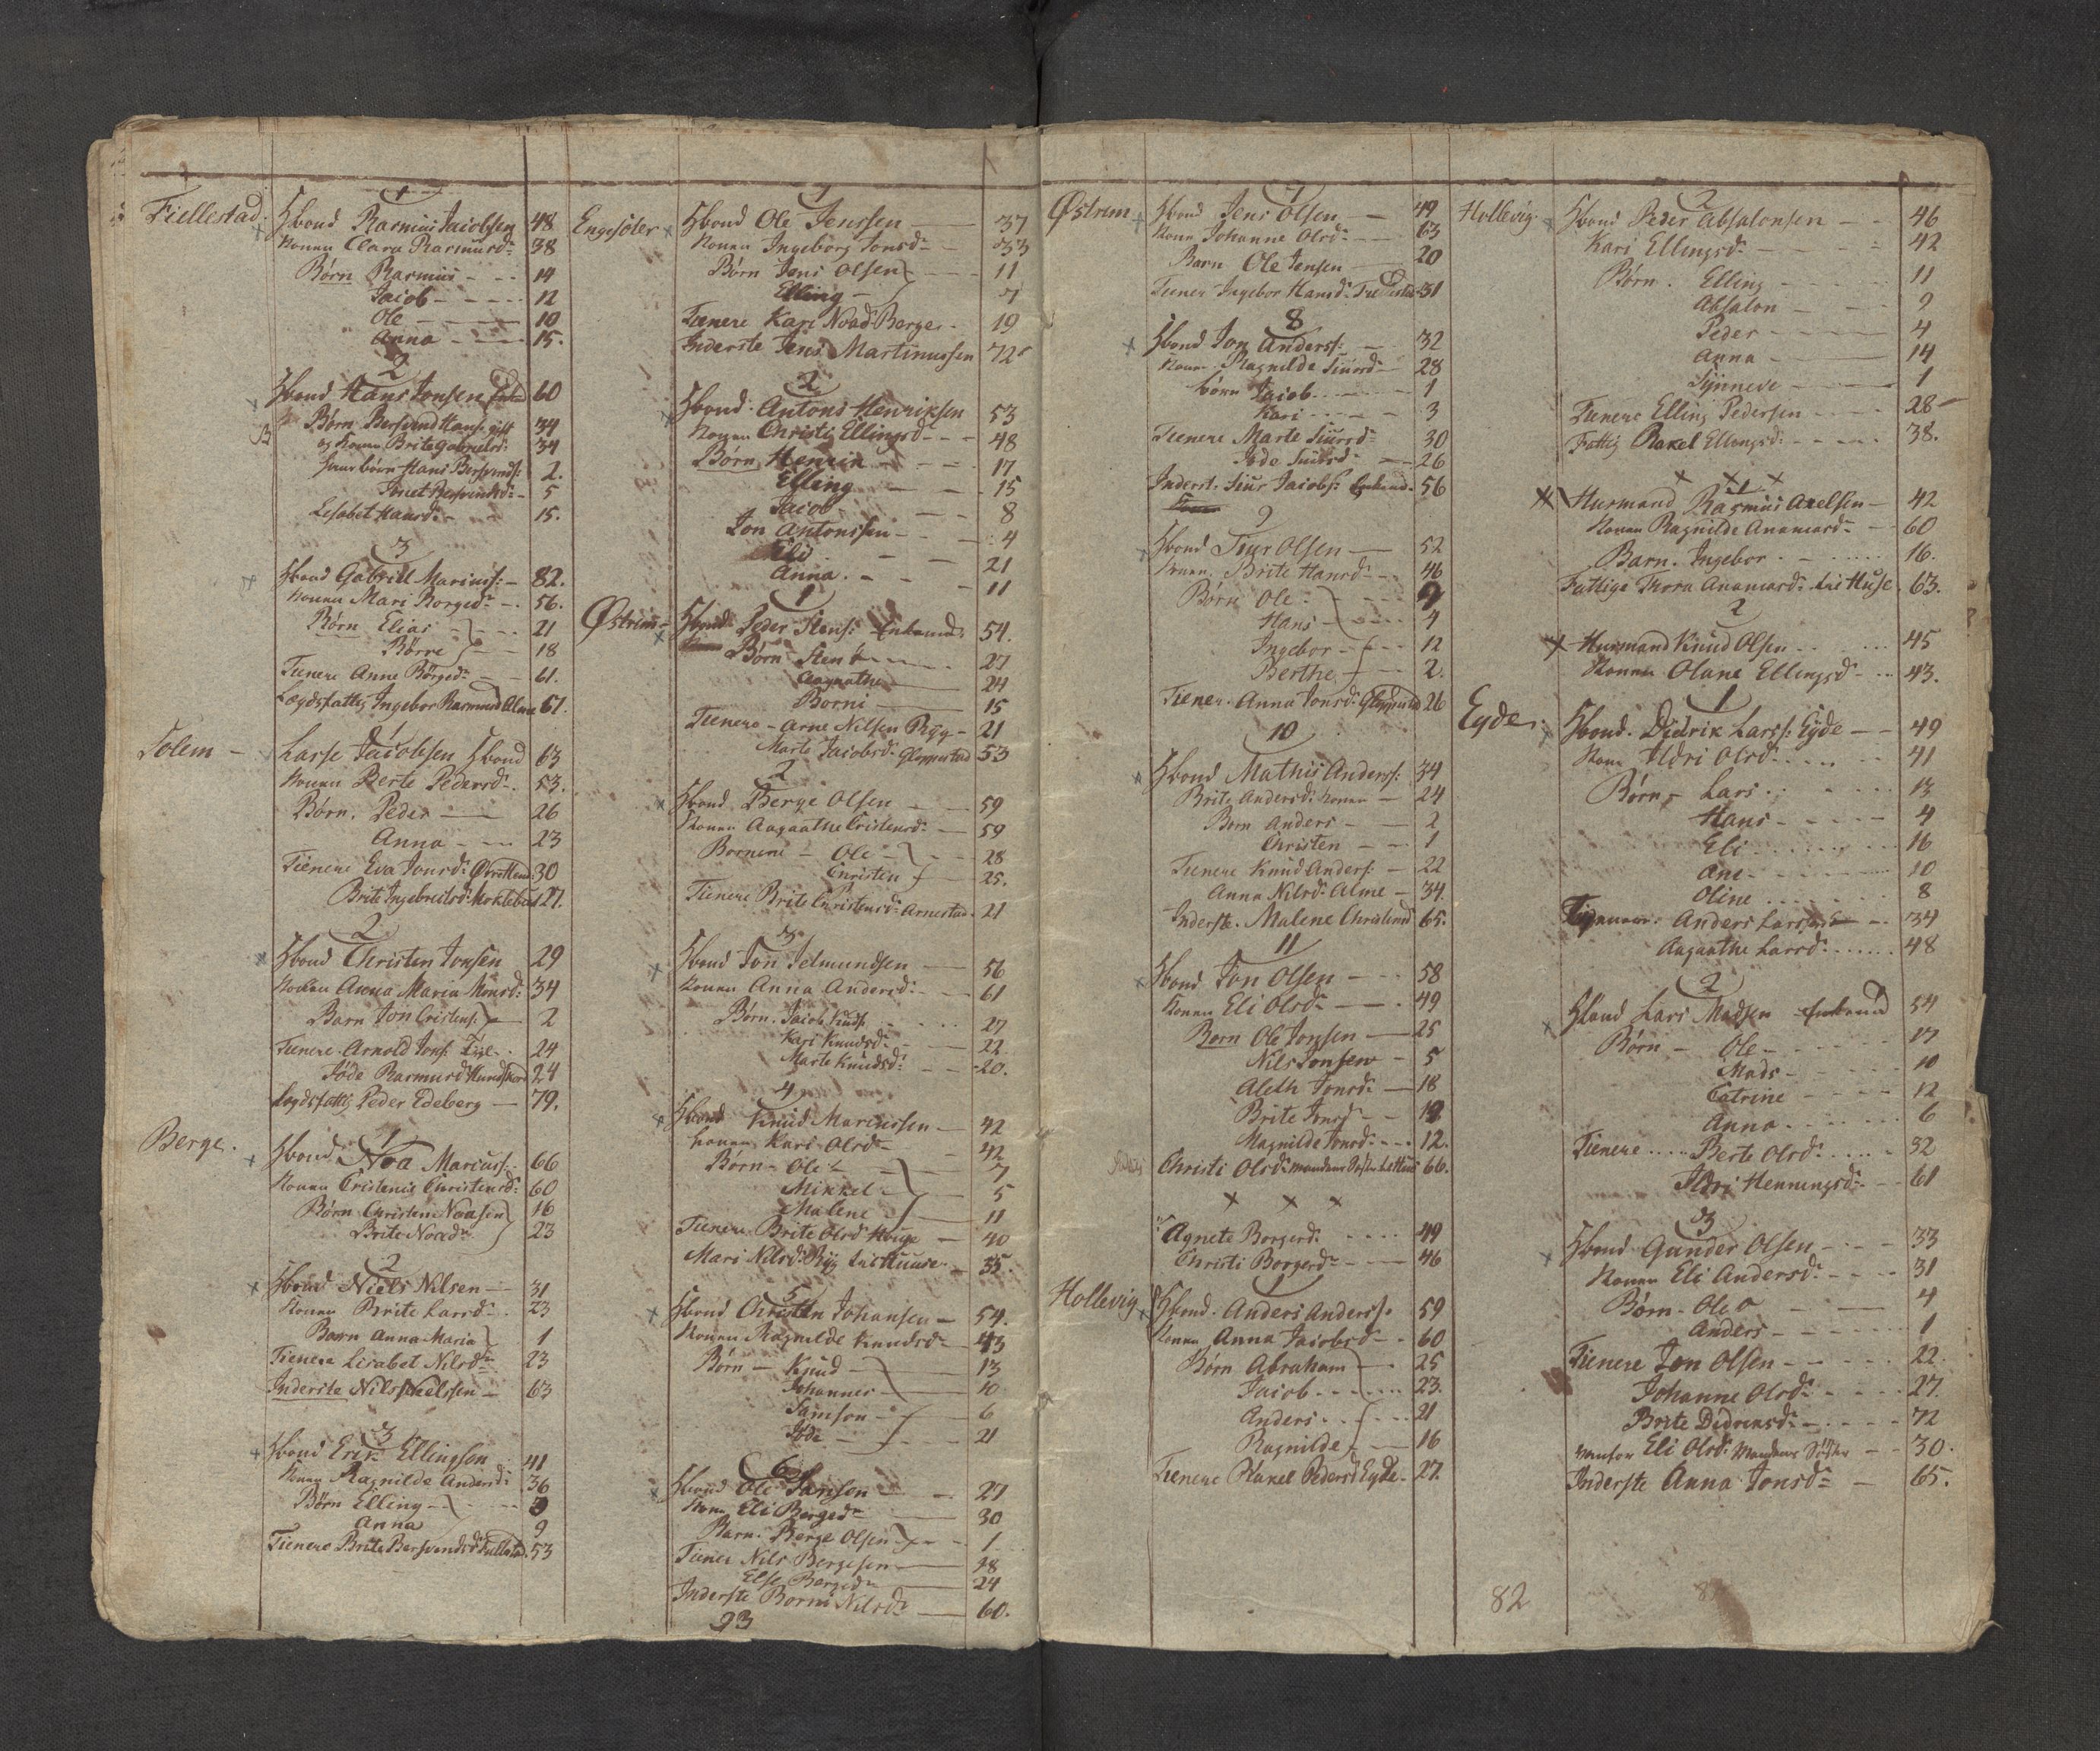 Fiellestad.
1
Hbond Rasmus Jacobsen 48
Konen Clara Rasmusd: 38
Børn Rasmus 14
Jacob 12
Ole 10
Anna 15.
2
Hbond Hans Jonsen 60
Børn Bersvend Hans: gift 34
og Konen Brite Gabrielsd: 34
børn Hans Bersvends: 2.
Bersvendsd: 5
Lisabet Hansd: 15.
3
Hbond Gabriel Marius: 82.
Konen Mari Borged: 56.
Børn Elias 21
Børre 18
Tienere Anne Børged: 61.
Lægdsfattig Ingebor Rasmusd Alme 61.
Solem
1
Larse Jacobsen Hbond 63
Konen Berte Pedersd: 53.
Børn. Peder 26
Anna 23
Tienere Eva Jonsd: 30
Brite Ingebreitsd: 27.
2
Hbond Christen Jonsen 29
Konen Anna Maria Monsd: 34
Barn Jon Cristens: 2
Tienere Arnold Jons: 24
Jøde Rasmusd 24
Lægdsfattig Peder Edeberg 79.
Berge.
1
Hbond Noa Marcuss: 66
Konen Cristense Christensd: 60
Børn Christen Noasen 16
Brite Noad: 23
2
Hbond Niels Nilsen 31
Konen Brite Larsd: 23
Barn Anna Maria 1
Tienere Lisabet Nilsd: 23
Inderste Nils Nielssen 63
3
Hbond Eric Ellingsen 41
Konen Ragnilde Andersd: 36
Børn Elling
Anna 9
Tienere Brite Bersvendsd 53
Engesøler
1
Hbond Ole Jenssen 37
Konen Ingeborg Jonsd: 33
Børn Jens Olsen 11
Elling 7
Tienere Kari Noad: Berge 19
Inderste Jens Martinussen 72
2
Hbond Antons Henriksen 53
Konen Christi Ellingsd: 48
Børn Henrik 17
Elling 15
Jacob 8
Jon Antonssen 4
21
Anna 11
Østrem
1
Hbond Peder Stens: Enkemd: 54.
Børn Sten 27
Aagaathe 24
Borni 15
Tienere Arne Nilsen Ryg 21
Marte Jacobsd: Gloppestad 53
2
Hbond Berge Olsen 59
Konen Aagaathe Cristensd: 59
Bornene Ole 28
Christen 25.
Tienere Brite Christensd: Arnestad 21
3
Hbond Jon Jelmundsen 56
Konen Anna Andersd: 61
Børn. Jacob Knuds: 27
Kari Knudsd: 22
Marte Knudsd: 20.
4
Hbond Knud Marcussen 42
Konen Kari Olsd: 42
Børn Ole 7
Mikkel 5
Malene 11
Tienere Brite Olsd Houge 40
Mari Nilsd: Ryg til Huuse 35.
5
Hbond Christen Johansen 54.
Konen Ragnilde Knudsd: 43
Børn Knud 13
Johannes 10
Samson 6
Jøde 21
6
Hbond Ole Samson 27
Konen Eli Berged: 30
Barn. Berge Olsen 1
Tiener Nils Bergesen 18
Else Berged: 24
Inderste Borni Nilsd: 60.
93
Østrem
7
Hbond Jens Olsen 49
Konen Johanne Olsd: 63
Barn Ole Jensen 20
Tiener Ingebor Hansd: 31
8
Hbond Jon Anderss: 32
Konen Ragnilde Siursd: 28
børn Jacob 1
Kari 3
Tienere Marte Siursd: 30
Jøde Siursd: 26
Inderst. Siur Jacobs: Enkemd: 56
9
Hbond Siur Olsen 52
Konen Brite Hansd: 46
Børn Ole
Hans 4
Ingebor 12
Berthe 2.
Tiener Anna Jonsd: 26
10
Hbond Mathis Anderss: 34
Brite Andersd: Konen 24
Børn Anders 2
Christen 1
Tienere Knud Anders: 22
Anna Nilsd: Alme 34.
Inderste. Malene Christensd: 65.
11
Hbond Jon Olsen 58
Konen Eli Olsd: 49
Børn Ole Jonsen 25
Nils Jonsen 5
Aleth Jonsd: 18
Brite Jonsd:
Magnilde Jonsd: 12.
Christi Olsd: mandens Søster til Huus 66.
x x x
Agnete Borgerd: 49
Christi Borgerd: 46
Hollevig
1
Hbond. Anders Anderss: 59
Konen Anna Jacobsd: 60
Børn Abraham 25
Jacob 23.
Anders 21
Ragnilde 16
Tienere Rakel Pedersd Eyde 27.
Hollevig
2
Hbond Peder Absalonsen 46
Kari Ellingsd: 42
Børn. Elling 11
Absalon 9
Peder 4
Anna 14
Synneve 1
Tienere Elling Pedersen 28
Fattig Rakel Ellingsd: 38.
x x x
1
Husmand Rasmus Axelsen 42
Konen Ragnilde Ananiasd: 60
Barn. Ingebor 16.
Fattige Thora Ananiasd: til Huse 63.
2
Husmand Knud Olsen 45
Konen Olane Ellingsd: 43.
Eyde.
1
Hbond. Didrik Larss: Eyde 49
Kone Ildri Olsd: 41
Børn Lars 13
Hans 4
Eli 16
Ane 10
Oline 8
Anders Larss: 34
Aagaathe Larsd: 48
2
Hbond Lars Madsen Enkemd 54
Børn Ole 17
Mads 10
Catrine 12
Anna 6
Tienere Berte Olsd: 32
Ildri Henningsd: 61
3
Hbond Gunder Olsen 33
Konen Eli Andersd: 31
Børn Ole 4
Anders 1
Tienere Jon Olsen 22
Johanne Olsd: 27.
Berte Didriksd: 72
vanfør Eli Olsd: Mandens Søster 30.
Inderste Anna Jonsd: 65.
82